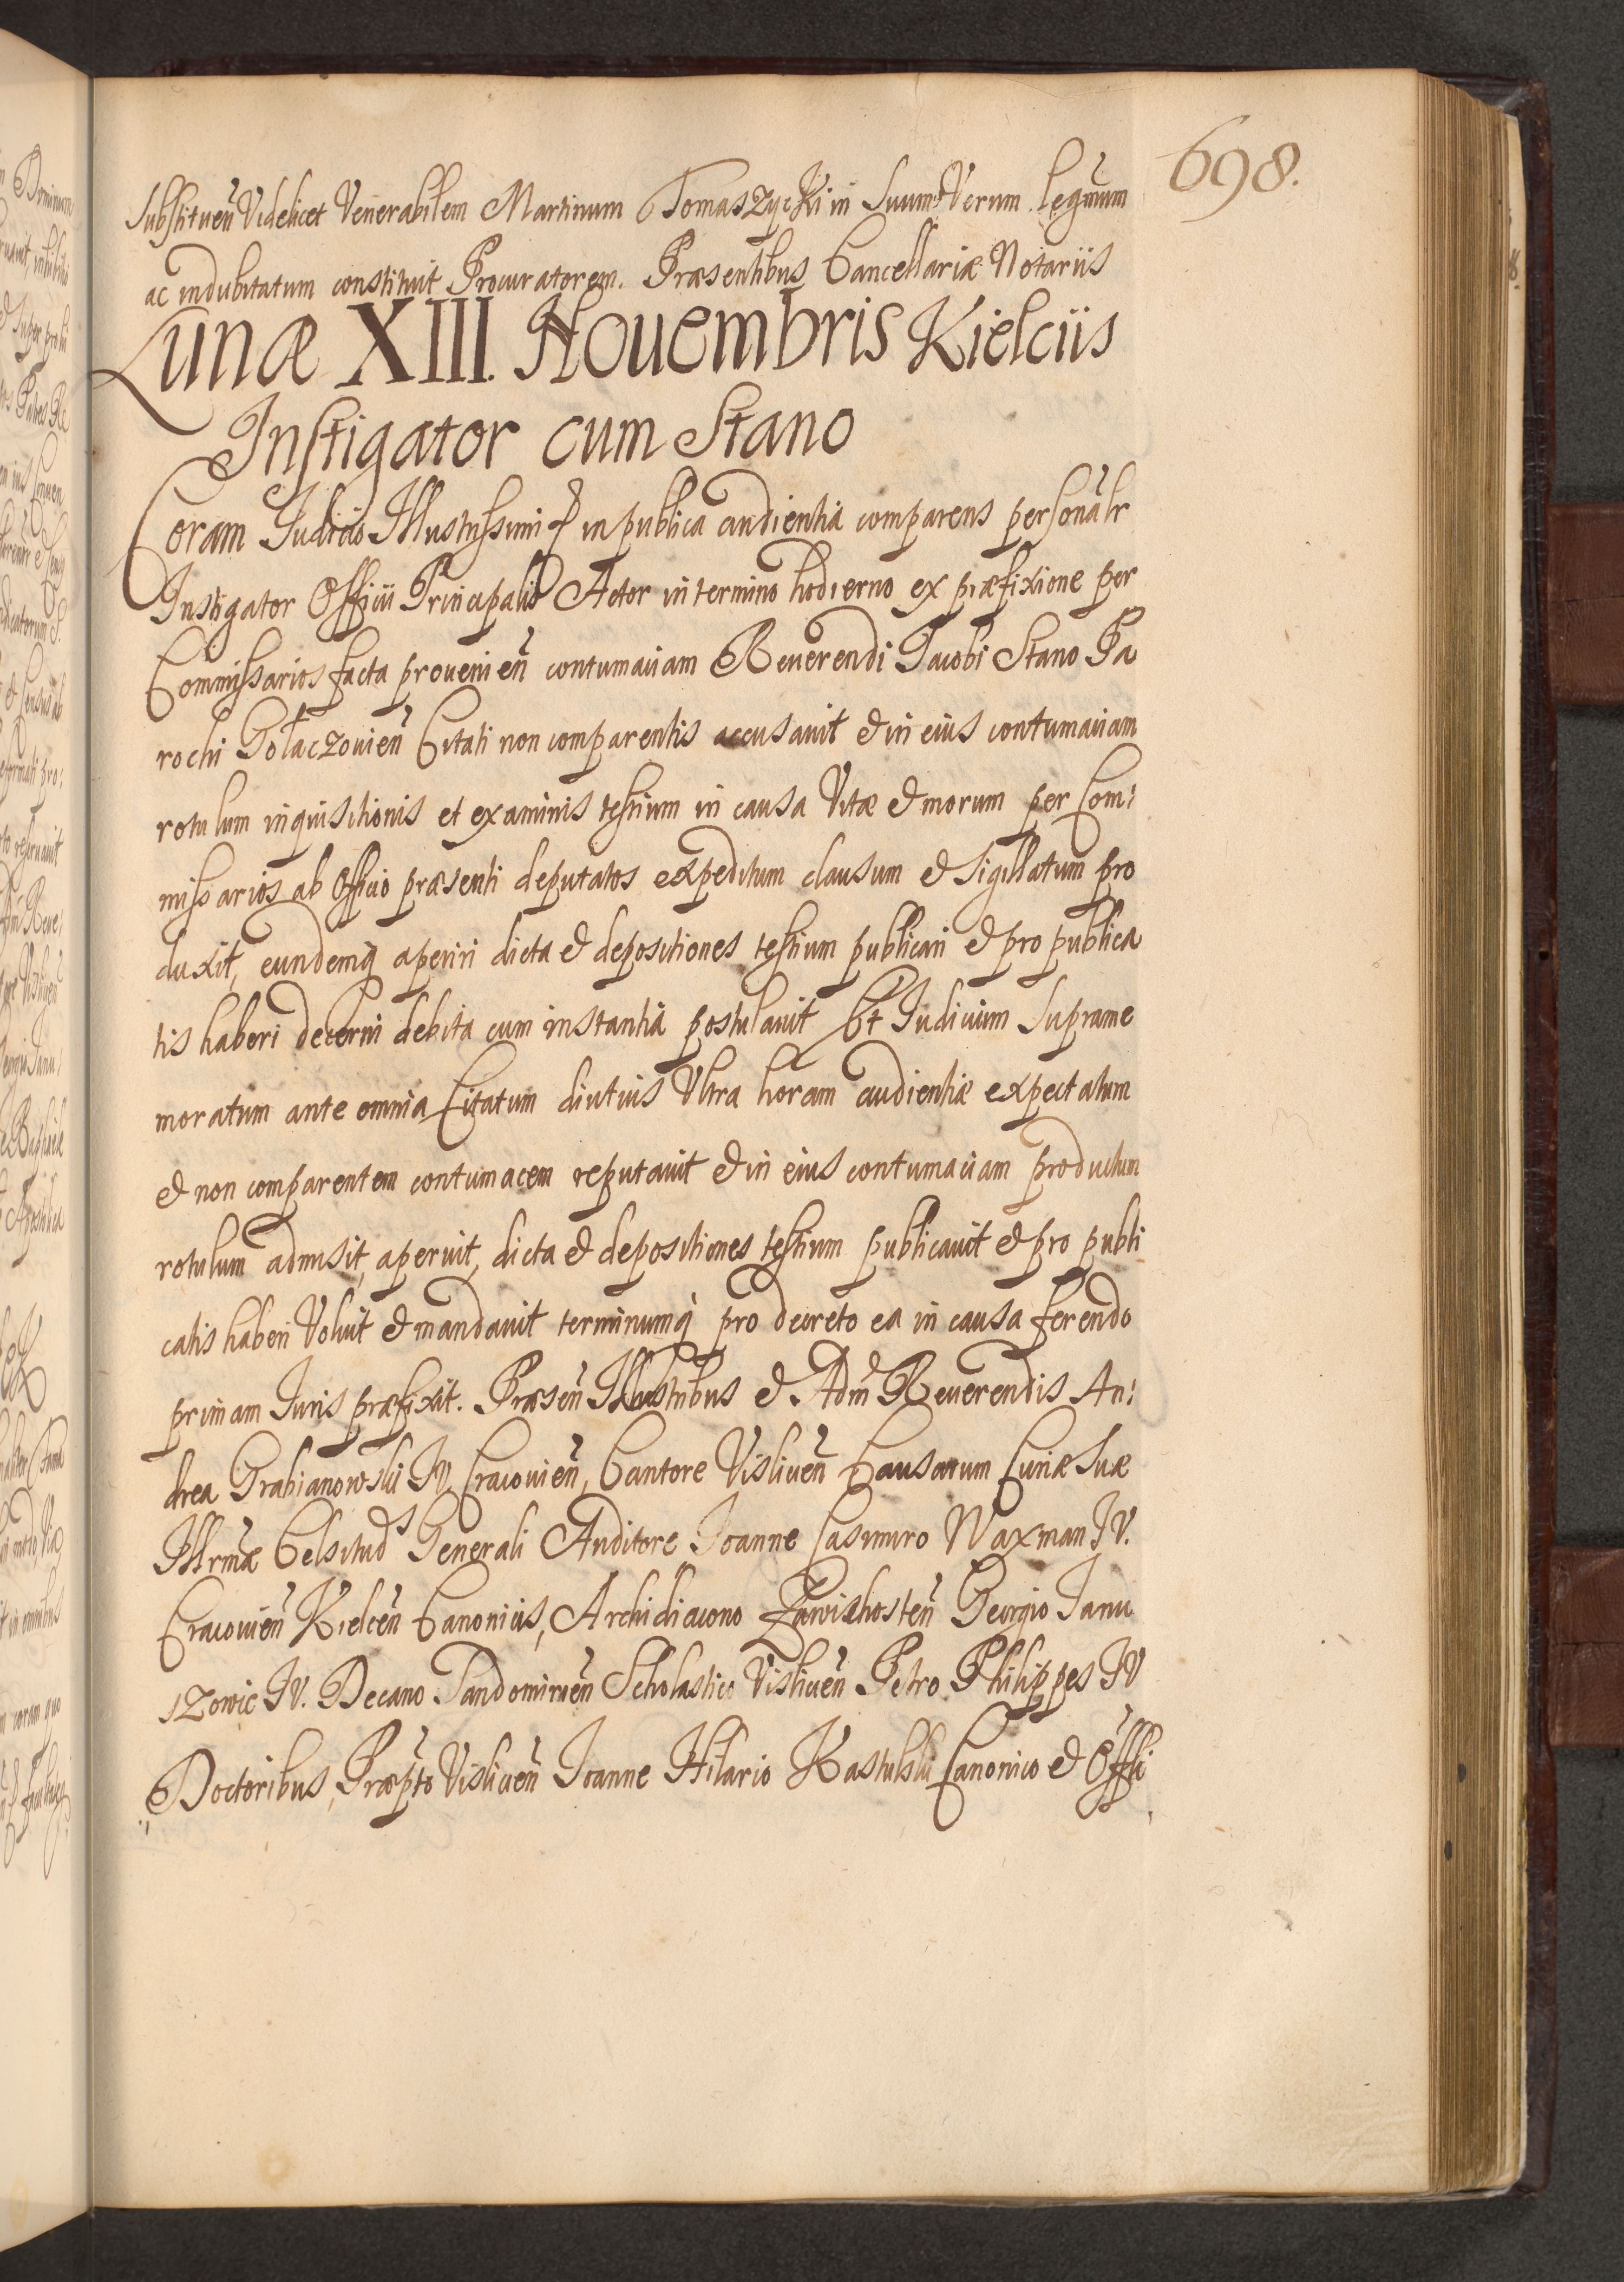 698.
Substituen̄ Videlicet Venerabilem Martinum Tomaszycki in Suum & Verum legm̄um
ac indubitatum constituit Procuratorem. Præsentibus Cancellariæ Notariis
Lunæ XIII. Nouembris Kielciis
Instigator cum Stano
Coram Judicio Illustrissimi in publica audientia comparens personalr̄
Instigator Officii Principalis Actor in termino hodierno ex præfixione per
Commissarios facta prouenien̄ contumaciam Reuerendi Jacobi Stano Pa
rochi Gołaczouien̄ Citati non comparentis accusauit & in eius contumaciam
rotulum inquisitionis et examinis testium in causa Vitæ & morum per Com:
missarios ab Officio præsenti deputatos expeditum clausum & Sigillatum pro
duxit, eundemq̄ aperiri dicta & depositiones testium publicari & pro publica
tis haberi decerni debita cum instantia postulauit Et Judicium Supra me
moratum ante omnia Citatum diutius Ultra horam audientiæ expectatum
& non comparentem contumacem reputauit & in eius contumaciam productum
rotulum admisit, aperuit, dicta & depositiones testium publicauit & pro publi
catis haberi Voluit & mandauit terminumq̄ pro decreto ea in causa ferendo
primam Juris præfixit. Præsen̄ Illustribus & Adm̄ Reuerendis An:
drea Grabianowski JV. Cracouien̄, Cantore Visliuen̄ Causarum Curiæ Suæ
Illrmæ Celsitud̄s Generali Auditore Joanne Casimiro Waxman JV.
Cracouien̄ Kielcen̄ Canoniiis, Archidiacono Zawichosten̄ Georgio Janu
szowic JV. Decano Sandomirien̄ Scholastico Visliuen̄ Petro Philippes JV
Doctoribus, Præpto Visliuen̄ Joanne Hilario Kastulski Canonico & Offli